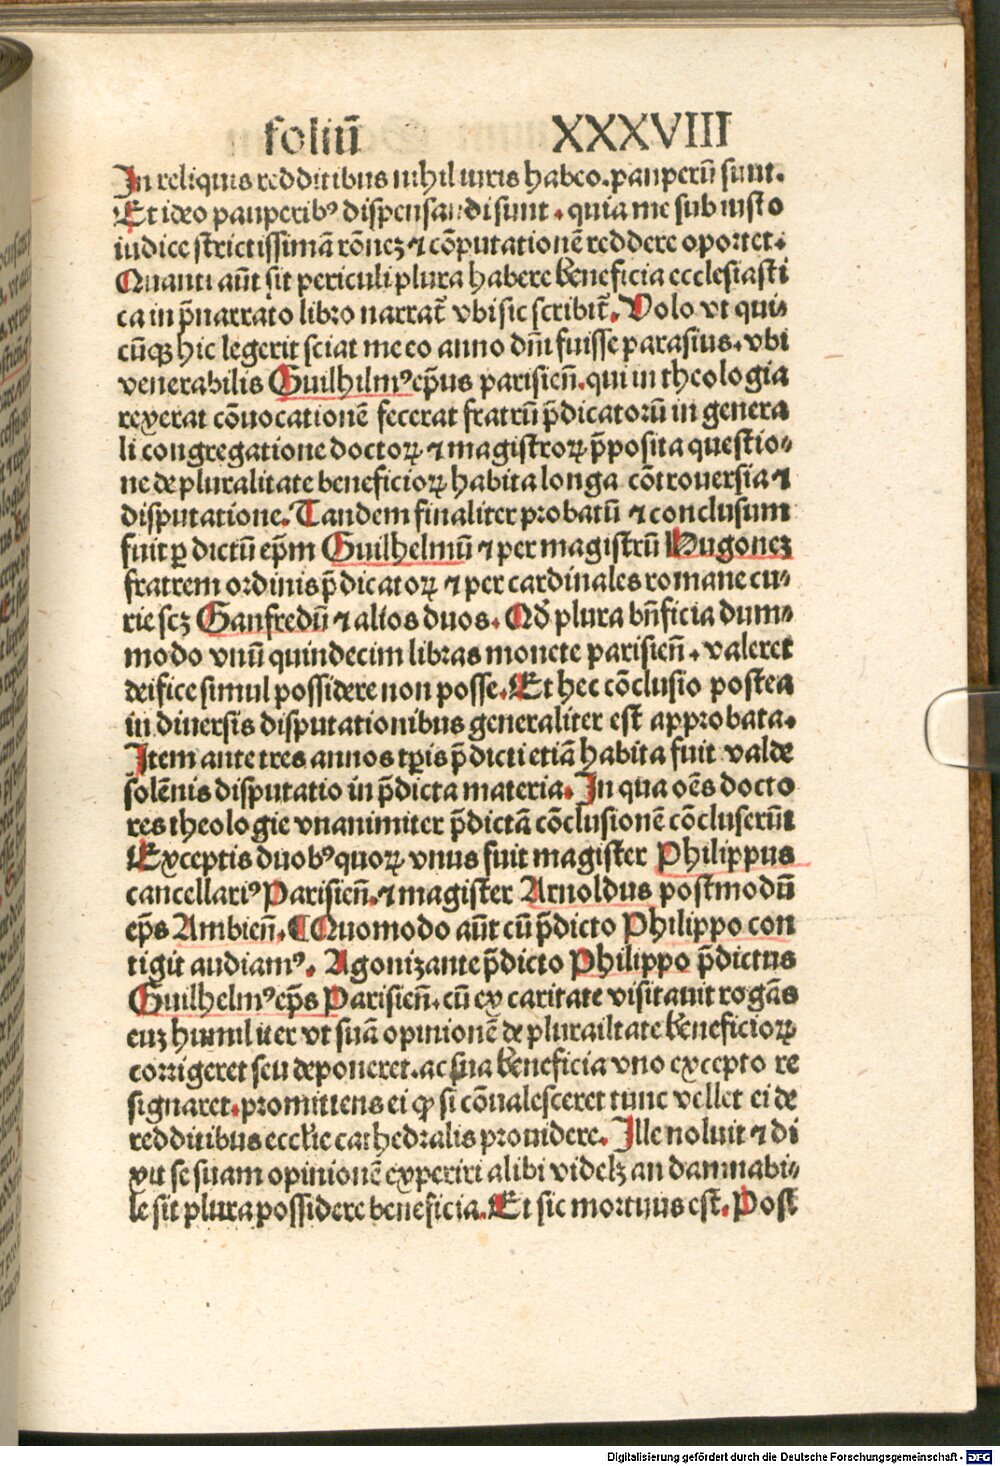 foliū XXXVIII
In reliquis redditibus nihil iuris habeo.pauperū sunt.
Et ideo pauperibꝰ dispensandi sunt.quia me sub iusto
iudice strictissimā rōnez ⁊ cōputationē reddere oportet.
Quanti aūt sit periculi plura habere beneficia ecclesiasti
ca in p̄narrato libro narrat᷑ vbi sic scribit᷑.Volo vt qui⸗
cūqꝫ hic legerit sciat me eo anno dn̄i fuisse parasius.vbi
venerabilis Guilhilmꝰ ep̄us parisien̄.qui in theologia
rexerat cōuocationē fecerat fratrū p̄dicatorū in genera
li congregatione doctoꝝ ⁊ magistroꝝ p̄posita questio⸗
ne de pluralitate beneficioꝝ habita longa cōtrouersia ⁊
disputatione.Tandem finaliter probatū ⁊ conclusum
fuit ꝑ dictū ep̄m Guilhelmū ⁊ per magistrū Hugonez
fratrem ordinis p̄dicatoꝝ ⁊ per cardinales romane cu⸗
rie scꝫ Ganfredū ⁊ alios duos.Qd̄ plura bn̄ficia dum⸗
modo vnū quindecim libras monete parisien̄.valeret
deifice simul possidere non posse.Et hec cōclusio postea
in diuersis disputationibus generaliter est approbata.
Item ante tres annos tꝑis p̄dicti etiā habita fuit valde
solēnis disputatio in p̄dicta materia.In qua oēs docto
res theologie vnanimiter p̄dictā cōclusionē cōcluserūt
Exceptis duobꝰ quoꝝ vnus fuit magister Philippus
cancellariꝰ Parisien̄.⁊ magister Arnoldus postmodū
ep̄s Ambien̄.⸿Quomodo aūt cū p̄dicto Philippo con
tigit audiamꝰ.Agonizante p̄dicto Philippo p̄dictus
Guilhelmꝰ ep̄s Parisien̄.eū ex caritate visitauit rogās
euz humiliter vt suā opinionē de plurailtate beneficioꝝ
corrigeret seu deponeret.ac sua beneficia vno excepto re
signaret.promittens ei ꝙ si cōualesceret tunc vellet ei de
redditibus ecclīe cathedralis prouidere.Ille noluit ⁊ di
xit se suam opinionē experiri alibi videlꝫ an damnabi⸗
le sit plura possidere beneficia.Et sic mortuus est.Post
Digitalisierung gefördert durch die Deutsche Forschungsgemeinschaft - DFG